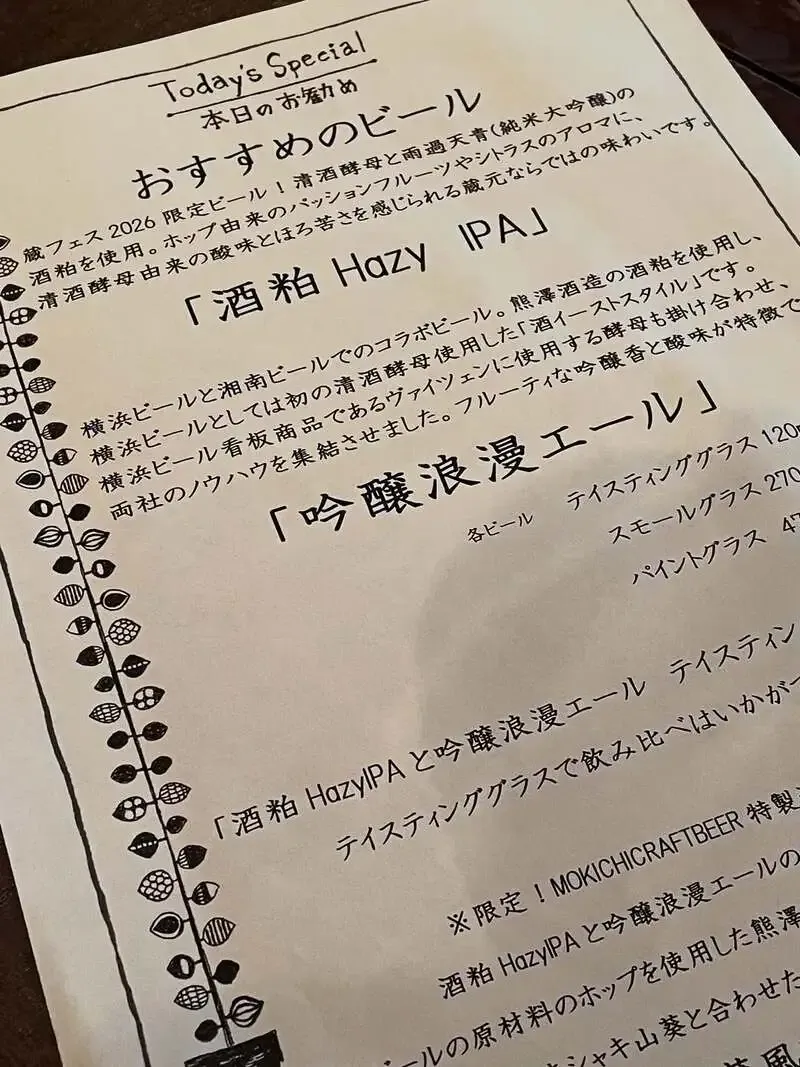 Today's Special
本日のお勧め
おすすめのビール
蔵フェス2026 限定ビール！清酒酵母と雨過天青(純米大吟醸)の
酒粕を使用。ホップ由来のパッションフルーツやシトラスのアロマに、
清酒酵母由来の酸味とほろ苦さを感じられる蔵元ならではの味わいです。
「酒粕 Hazy IPA」
横浜ビールと湘南ビールでのコラボビール。熊澤酒造の酒粕を使用し、
横浜ビールとしては初の清酒酵母使用した「酒イーストスタイル」です。
横浜ビール看板商品であるヴァイツェンに使用する酵母も掛け合わせ、
両社のノウハウを集結させました。フルーティな吟醸香と酸味が特徴で
「吟醸浪漫エール」
各ビール テイスティンググラス 120m
スモールグラス 270
パイントグラス 47
「酒粕 HazyIPAと吟醸浪漫エール テイスティン
テイスティンググラスで飲み比べはいかがで
※限定！MOKICHICRAFTBEER 特製
酒粕 HazyIPAと吟醸浪漫エールの
ビールの原材料のホップを使用した熊澤
シャキ山葵と合わせた
風